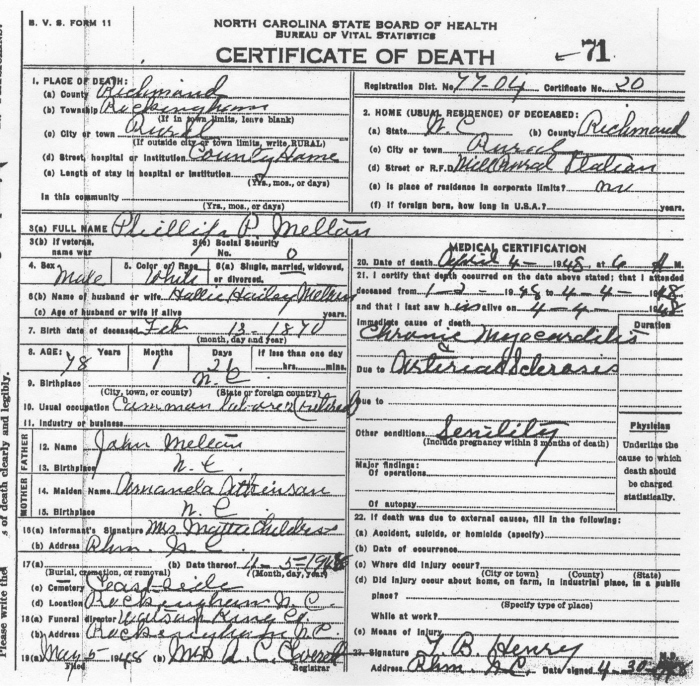 B. V. S. FORM 11
NORTH CAROLINA STATE BOARD OF HEALTH
BUREAU OF VITAL STATISTICS
CERTIFICATE OF DEATH
71
1. PLACE OF DEATH:
(a) County Richmond
(b) Township Rockingham
(If in town limits, leave blank)
(c) City or town Rural
(If outside city or town limits, write RURAL)
(d) Street, hospital or institution County Home
(e) Length of stay in hospital or institution
(Yrs., mos., or days)
In this community
(Yrs., mos., or days)
Registration Dist. No. 77-04 Certificate No. 20
2. HOME (USUAL RESIDENCE) OF DECEASED:
(a) State N C (b) County Richmond
(c) City or town Rural
(d) Street or R.F.D.
(e) Is place of residence in corporate limits? no
(f) If foreign born, how long in U.S.A.? years.
3(a) FULL NAME Phillip P. Melton
3(b) If veteran, name war
3(c) Social Security No. 0
4. Sex Male
5. Color or Race White
6(a) Single, married, widowed, or divorced.
6(b) Name of husband or wife Hallie Hailey Melton
(c) Age of husband or wife if alive years.
7. Birth date of deceased Feb 13-1870
(month, day and year)
8. AGE: Years Months Days If less than one day
78 1 hrs. mins.
9. Birthplace N. C.
(City, town, or county) (State or foreign country)
10. Usual occupation Common laborer (retired)
11. Industry or business
FATHER
12. Name John Melton
13. Birthplace N. C.
MOTHER
14. Maiden Name Amanda Atkinson
15. Birthplace N. C.
16(a) Informant's Signature Mrs Childers
(b) Address Rhm. N. C.
17(a) (b) Date thereof 4-5-1948
(Burial, cremation, or removal) (Month, day, year)
(c) Cemetery East-side
(d) Location Rockingham N. C.
18(a) Funeral director Watson King Co
(b) Address Rockingham N. C.
19(a) May 5 1948 (b) Mrs A. C.
Filed Registrar
MEDICAL CERTIFICATION
20. Date of death April 4 - 1948 at 6 M.
21. I certify that death occurred on the date above stated; that I attended
deceased from 1-2- 1948 to 4-4- 1948
and that I last saw him alive on 4-4- 1948
Immediate cause of death Duration
Chronic Myocarditis
&
Due to Arterial Sclerosis
Due to
Other conditions Senility
(Include pregnancy within 3 months of death)
Major findings:
Of operations
Of autopsy
Physician
Underline the
cause to which
death should
be charged
statistically.
22. If death was due to external causes, fill in the following:
(a) Accident, suicide, or homicide (specify)
(b) Date of occurrence
(c) Where did injury occur?
(City or town) (County) (State)
(d) Did injury occur about home, on farm, in industrial place, in a public
place?
(Specify type of place)
While at work?
(e) Means of Injury
23. Signature T. B. Henry M.D.
Address Rhm. N.C. Date signed 4-30-1948
s of death clearly and legibly.
Please write the